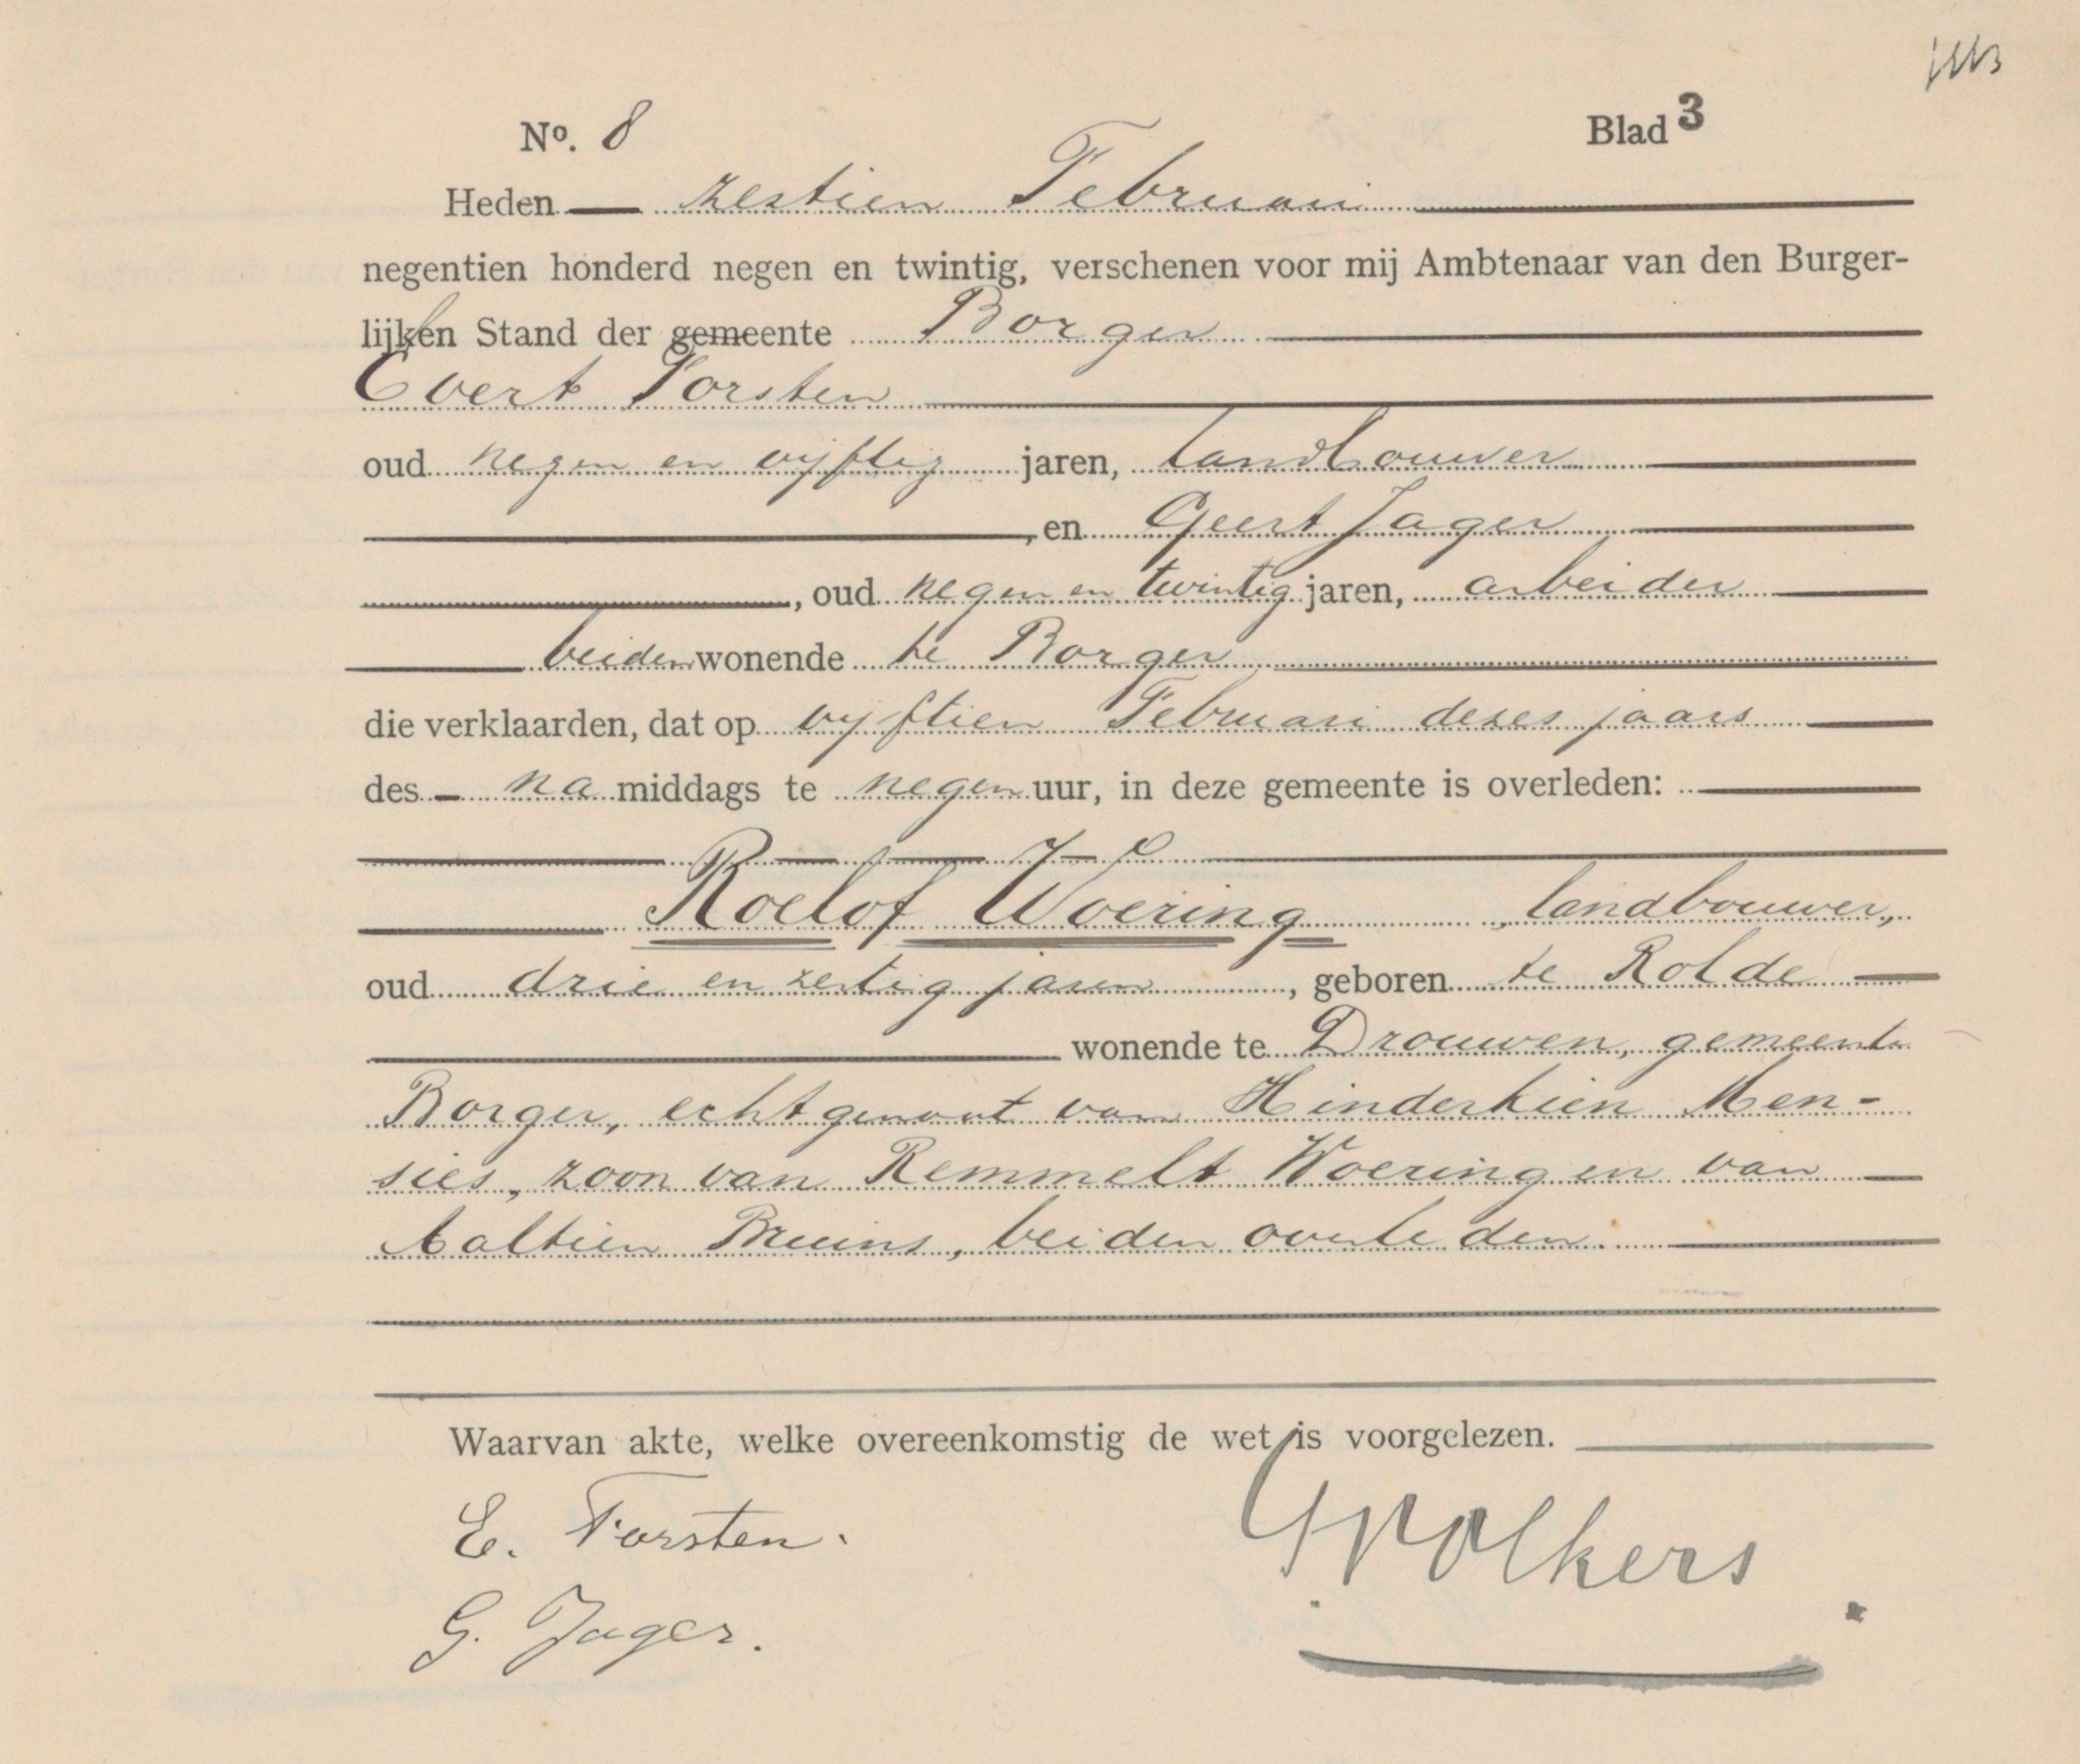 No. 8 Blad 3
Heden zestien Februari
negentien honderd negen en twintig, verschenen voor mij Ambtenaar van den Burger-
lijken Stand der gemeente Borger
Evert Forsten
oud negen en vyftig jaren, landbouwer
, en Geert Jager
, oud negen en twintig jaren, arbeider
beiden wonende te Borger
die verklaarden, dat op vyftien Februari dezes jaars
des na middags te negen uur, in deze gemeente is overleden:
Roelof Woering, landbouwer,
oud drie en zestig jaren, geboren te Rolde
wonende te Drouwen, gemeente
Borger, echtgenoot van Hinderkien Men-
sies, zoon van Remmelt Woering en van
Aaltien Bruins, beiden overleden.
Waarvan akte, welke overeenkomstig de wet is voorgelezen.
E. Forsten.
G. Jager.